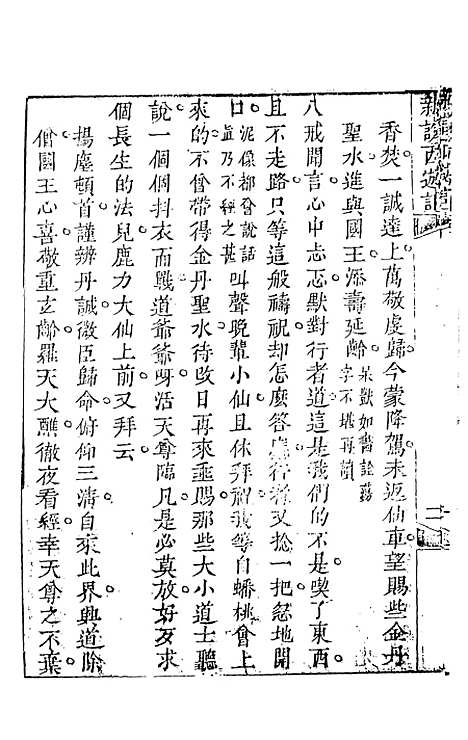 新說西遊記
香焚一誠達上萬敬虔歸今蒙降駕未返仙車望賜些金丹
聖水進與國王添壽延齡
八戒聞言心中忐忑默對行者道這是我們的不是喫了東西
且不走路只等這般禱祝却怎麼答應行者又捻一把忽地開
口
泥像都會說話
真乃不經之甚
叫聲晚輩小仙且休拜祝我等自蟠桃會上
來的不曾帶得金丹聖水待改日再來垂賜那些大小道士聽
說一個個抖衣而戰道爺爺呀活天尊臨凡是必莫放好歹求
個長生的法兒鹿力大仙上前又拜云
揚塵頓首謹辨丹誠微臣歸命俯仰三清自來此界興道除
僧國王心喜敬重玄齡羅天大醮徹夜看經幸天尊之不棄